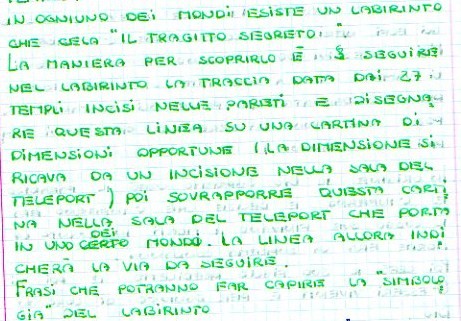 IN OGNIUNO DEI MONDI ESISTE UN LABIRINTO
CHE CELA "IL TRAGITTO SEGRETO".
LA MANIERA PER SCOPRIRLO È SEGUIRE
NEL LABIRINTO LA TRACCIA DATA DAI 27
TEMPLI INCISI NELLE PARETI E DISEGNA-
RE QUESTA LINEA SU UNA CARTINA DI
DIMENSIONI OPPORTUNE (LA DIMENSIONE SI
RICAVA DA UN INCISIONE NELLA SALA DEL
TELEPORT) POI SOVRAPPORRE QUESTA CARTI
NA NELLA SALA DEL TELEPORT CHE PORTA
IN UNO DEI MONDI. LA LINEA ALLORA INDI
CHERÀ LA VIA DA SEGUIRE.
FRASI CHE POTRANNO FAR CAPIRE LA "SIMBOLO
GIA" DEL LABIRINTO